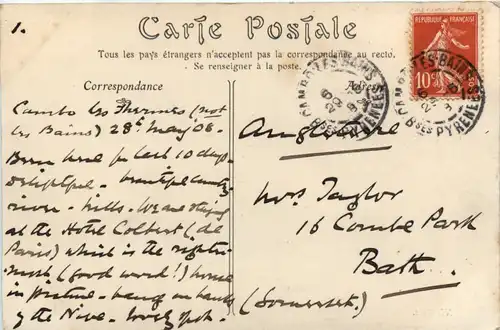 1.
Carte Postale
Tous les pays étrangers n'acceptent pas la correspondance au recto.
Se renseigner à la poste.
Correspondance
Cambo les Thermes (not
les Bains) 28th May '06.
Been here for last 10 days.
Delightful. beautiful country
river. hills. We are staying
at the Hotel Colbert (de
Paris) which is the
(good word!) house
in picture. on banks
of the Nive. lovely spot.
Adresse
Angleterre
Mrs Taylor
16 Combe Park
Bath.
(Somerset.)
RÉPUBLIQUE FRANÇAISE
10c
CAMBO-LES-BAINS
Bses PYRENEES
CAMBO-LES-BAINS
Bses PYRENEES